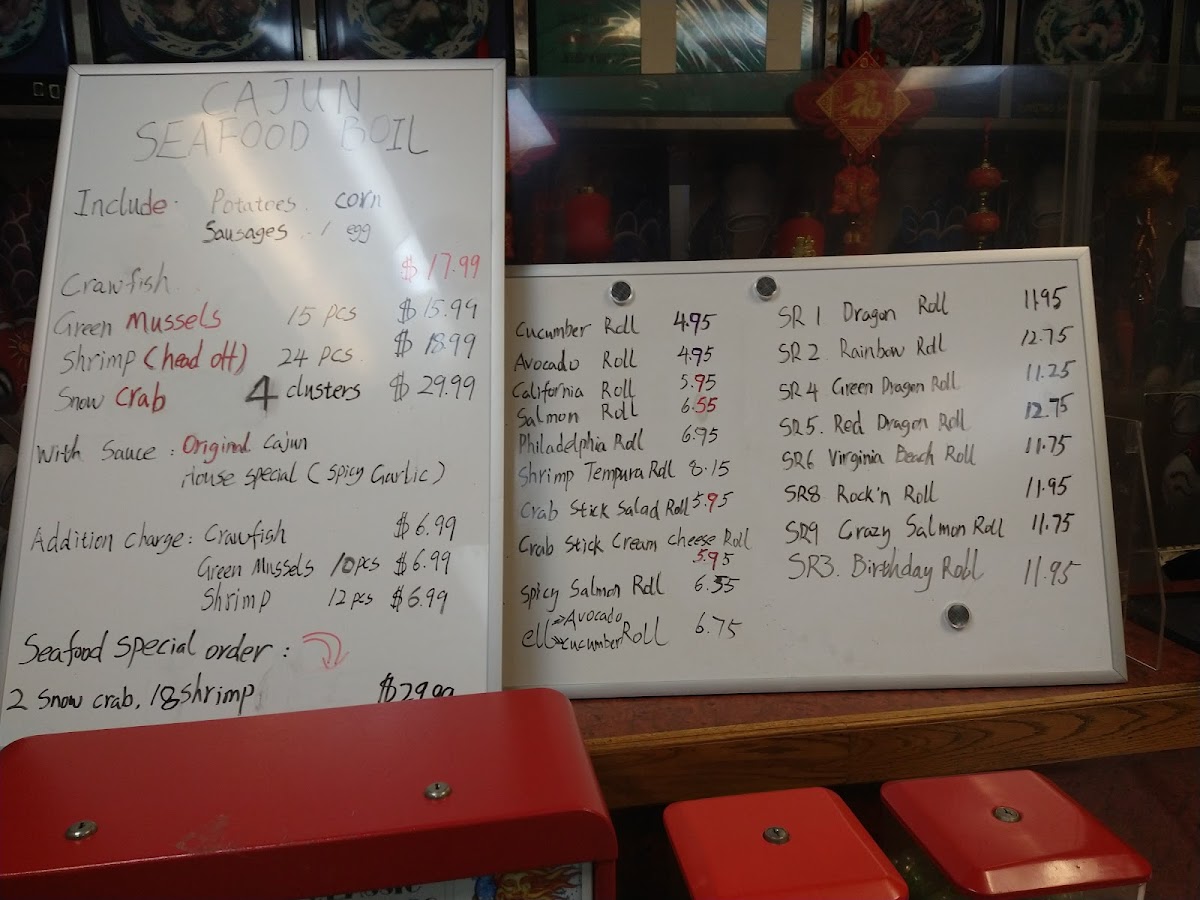 CAJUN
SEAFOOD BOIL
Include. Potatoes. corn
Sausages. 1 egg
Crawfish $17.99
Green Mussels 15 pcs $15.99
Shrimp (head off) 24 pcs. $18.99
Snow Crab 4 clusters $29.99
With Sauce: Original Cajun
House special (Spicy Garlic)
Addition charge: Crawfish $6.99
Green Mussels 10pcs $6.99
Shrimp 12 pcs $6.99
Seafood special order:
2 Snow crab, 18 shrimp $29.99
Cucumber Roll 4.95
Avocado Roll 4.95
California Roll 5.95
Salmon Roll 6.55
Philadelphia Roll 6.95
Shrimp Tempura Roll 8.15
Crab Stick Salad Roll 5.95
Crab Stick Cream cheese Roll
5.95
Spicy Salmon Roll 6.55
ell Avocado
cucumber Roll 6.75
SR 1 Dragon Roll 11.95
SR 2. Rainbow Roll 12.75
SR 4 Green Dragon Roll 11.25
SR5. Red Dragon Roll 12.75
SR6 Virginia Beach Roll 11.75
SR8 Rock'n Roll 11.95
SR9 Crazy Salmon Roll 11.75
SR3. Birthday Roll 11.95
福